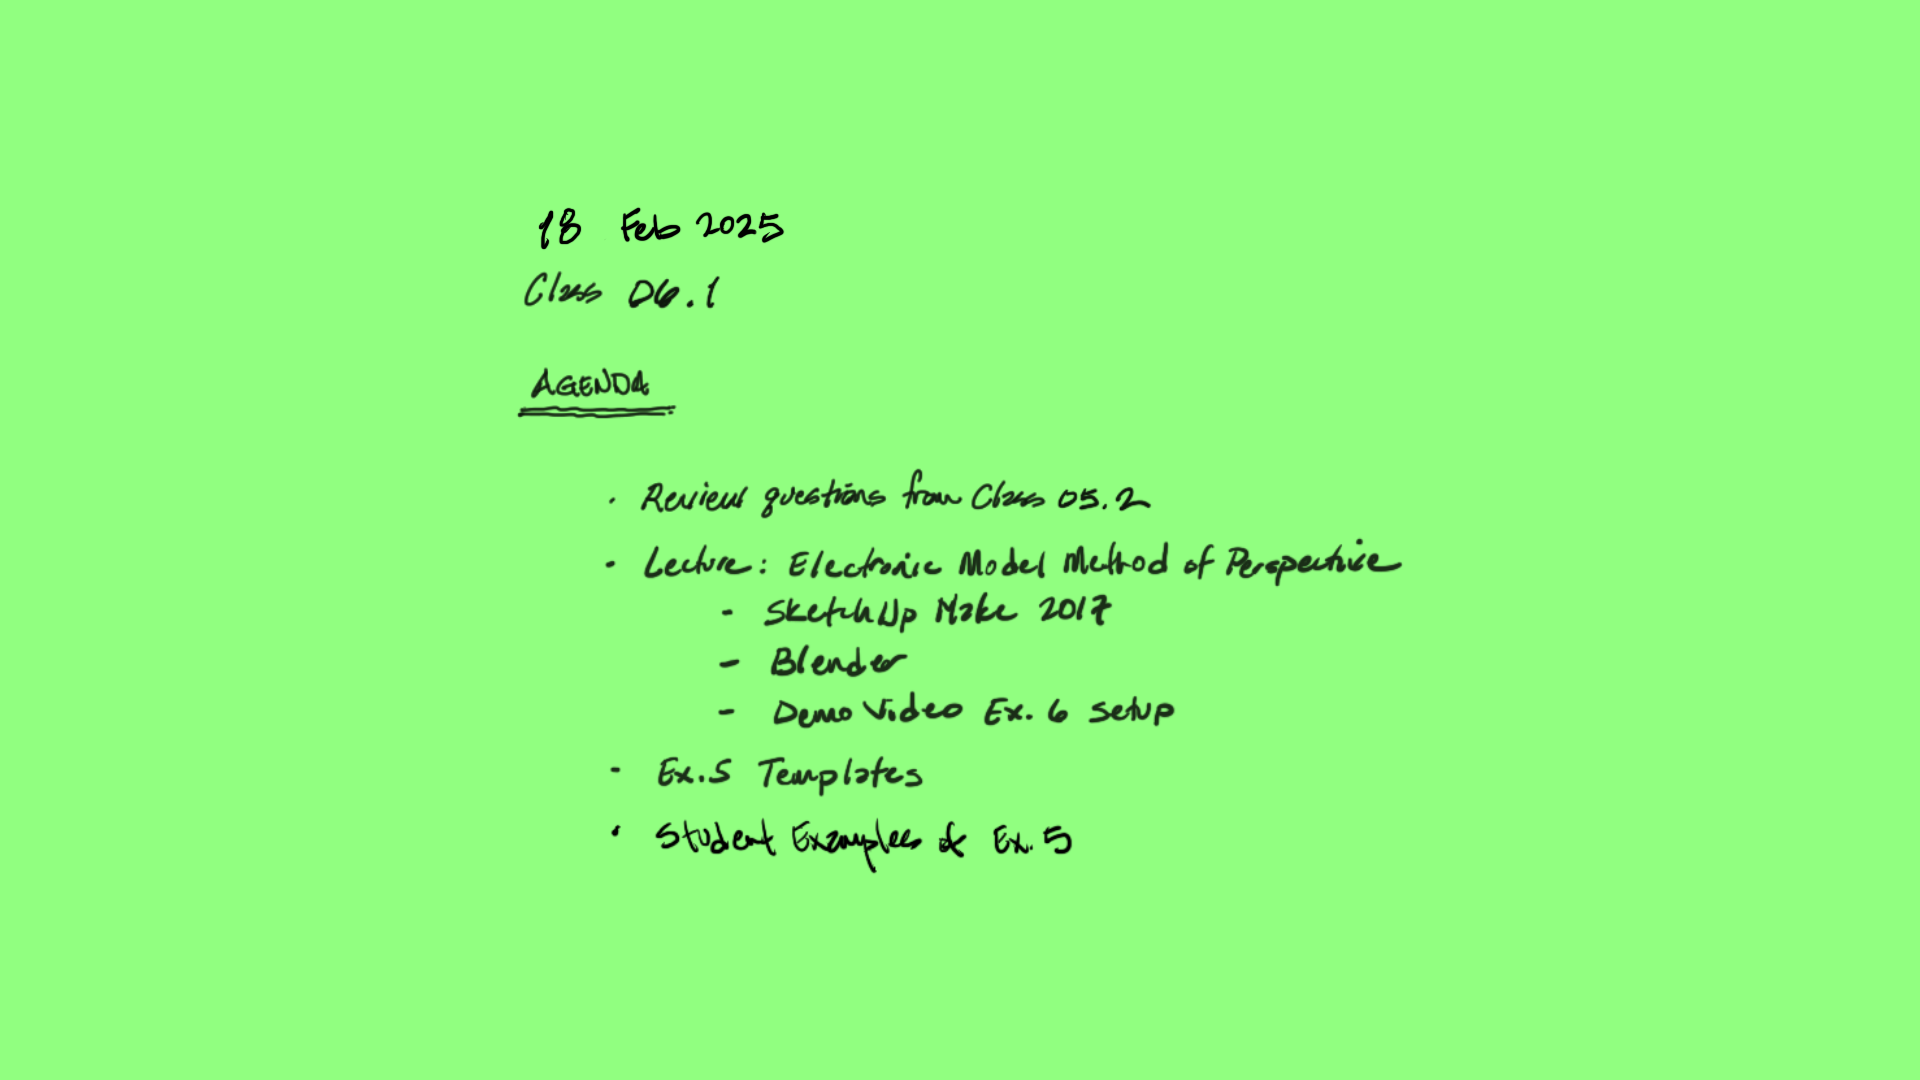 18 Feb 2025
Class 06.1
AGENDA
· Review questions from Class 05.2
· Lecture: Electronic Model Method of Perspective
- SketchUp Make 2017
- Blender
- Demo Video Ex. 6 setup
- Ex. 5 Templates
· Student Examples of Ex. 5